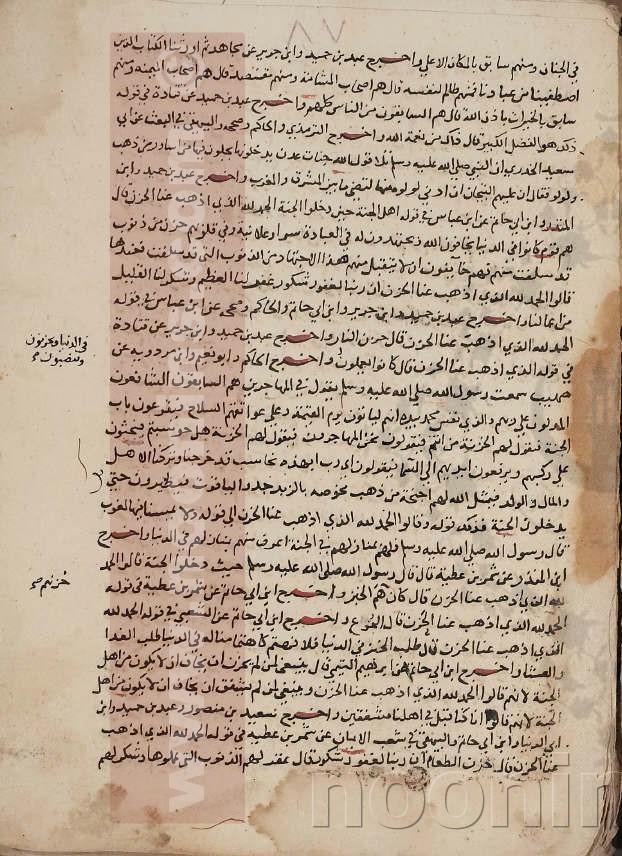 ٨٧
في الجنان ومنهم سابق بالمكان الاعلى واخرج عبد بن حميد وابن جرير عن مجاهد ثم اورثنا الكتاب الذين
اصطفينا من عبادنا فمنهم ظالم لنفسه قال هم اصحاب المشامة ومنهم مقتصد قال هم اصحاب الميمنة ومنهم
سابق بالخيرات باذن الله قال هم السابقون من الناس كلهم واخرج عبد بن حميد عن قتادة في قوله
ذلك هو الفضل الكبير قال ذاك من نعمة الله واخرج الترمذي والحاكم وصححه والبيهقي في البعث عن ابي
سعيد الخدري ان النبي صلى الله عليه وسلم تلا قول الله جنات عدن يدخلونها يحلون فيها من اساور من ذهب
ولولو فقال ان عليهم التيجان ان ادنى لولوة منها لتضي ما بين المشرق والمغرب واخرج عبد بن حميد وابن
المنذر وابن ابي حاتم عن ابن عباس في قوله اهل الجنة حين دخلوا الجنة الحمد لله الذي اذهب عنا الحزن قال
هم قوم كانوا في الدنيا يخافون الله ويجتهدون له في العبادة سرا وعلانية وفي قلوبهم حزن من ذنوب
قد سلفت منهم فهم خايفون ان لا يتقبل منهم هذا الاجتهاد من الذنوب التي قد سلفت فعندها
قالوا الحمد لله الذي اذهب عنا الحزن ان ربنا لغفور شكور غفر لنا العظيم وشكر لنا القليل
من اعمالنا واخرج عبد بن حميد وابن جرير وابن ابي حاتم والحاكم وصححه عن ابن عباس في قوله
الحمد لله الذي اذهب عنا الحزن قال حزن النار واخرج عبد بن حميد وابن جرير عن قتادة
في قوله الذي اذهب عنا الحزن قال كانوا يعملون واخرج الحاكم وابو نعيم وابن مردويه عن
صهيب سمعت رسول الله صلى الله عليه وسلم يقول في المهاجرين هم السابقون الشافعون
المدلون على ربهم والذي نفس محمد بيده انهم لياتون يوم القيمة وعلى عواتقهم السلاح فيقرعون باب
الجنة فتقول لهم الخزنة من انتم فيقولون نحن المهاجرون فتقول لهم الخزنة هل حوسبتم فيجثون
على ركبهم ويرفعون ايديهم الى السماء فيقولون اي رب ابهذه نحاسب قد خرجنا وتركنا الاهل
والمال والولد فيمثل الله لهم اجنحة من ذهب مخوصة بالزبرجد والياقوت فيطيرون حتى
يدخلون الجنة فذلك قوله وقالوا الحمد لله الذي اذهب عنا الحزن الى قوله ولا يمسنا فيها لغوب
قال رسول الله صلى الله عليه وسلم فلهم بمنازلهم في الجنة اعرف منهم بمنازلهم في الدنيا واخرج
ابن المنذر عن شمر بن عطية قال قال رسول الله صلى الله عليه وسلم حيث دخلوا الجنة قالوا الحمد
لله الذي اذهب عنا الحزن قال كان هم الخبز واخرج ابن ابي حاتم عن شمر بن عطية في قوله
الحمد لله الذي اذهب عنا الحزن قال الجوع واخرج ابن ابي حاتم عن الشعبي في قوله الحمد لله
الذي اذهب عنا الحزن قال طلب الخبز في الدنيا فلا نهتم كاهتمامنا له في الدنيا طلب الغدا
والعشا واخرج ابن ابي حاتم عن ابراهيم التيمي قال ينبغي لمن لم يحزن ان يخاف ان لا يكون من اهل
الجنة لانهم قالوا الحمد لله الذي اذهب عنا الحزن وينبغي لمن لم يشفق ان يخاف ان لا يكون من اهل
الجنة لانهم قالوا انا كنا قبل في اهلنا مشفقين واخرج سعيد بن منصور وعبد بن حميد وابن
ابي الدنيا وابن ابي حاتم والبيهقي في شعب الايمان عن شمر بن عطية في قوله الحمد لله الذي اذهب
عنا الحزن قال حزن الطعام ان ربنا لغفور شكور قال غفر لهم الذنوب التي عملوها وشكر لهم
في الدنيا ويحزنون
وينصبون
حزنهم
noonin